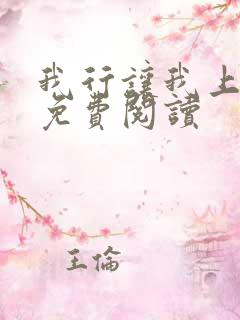 我行讓我上
免費閱讀
王倫